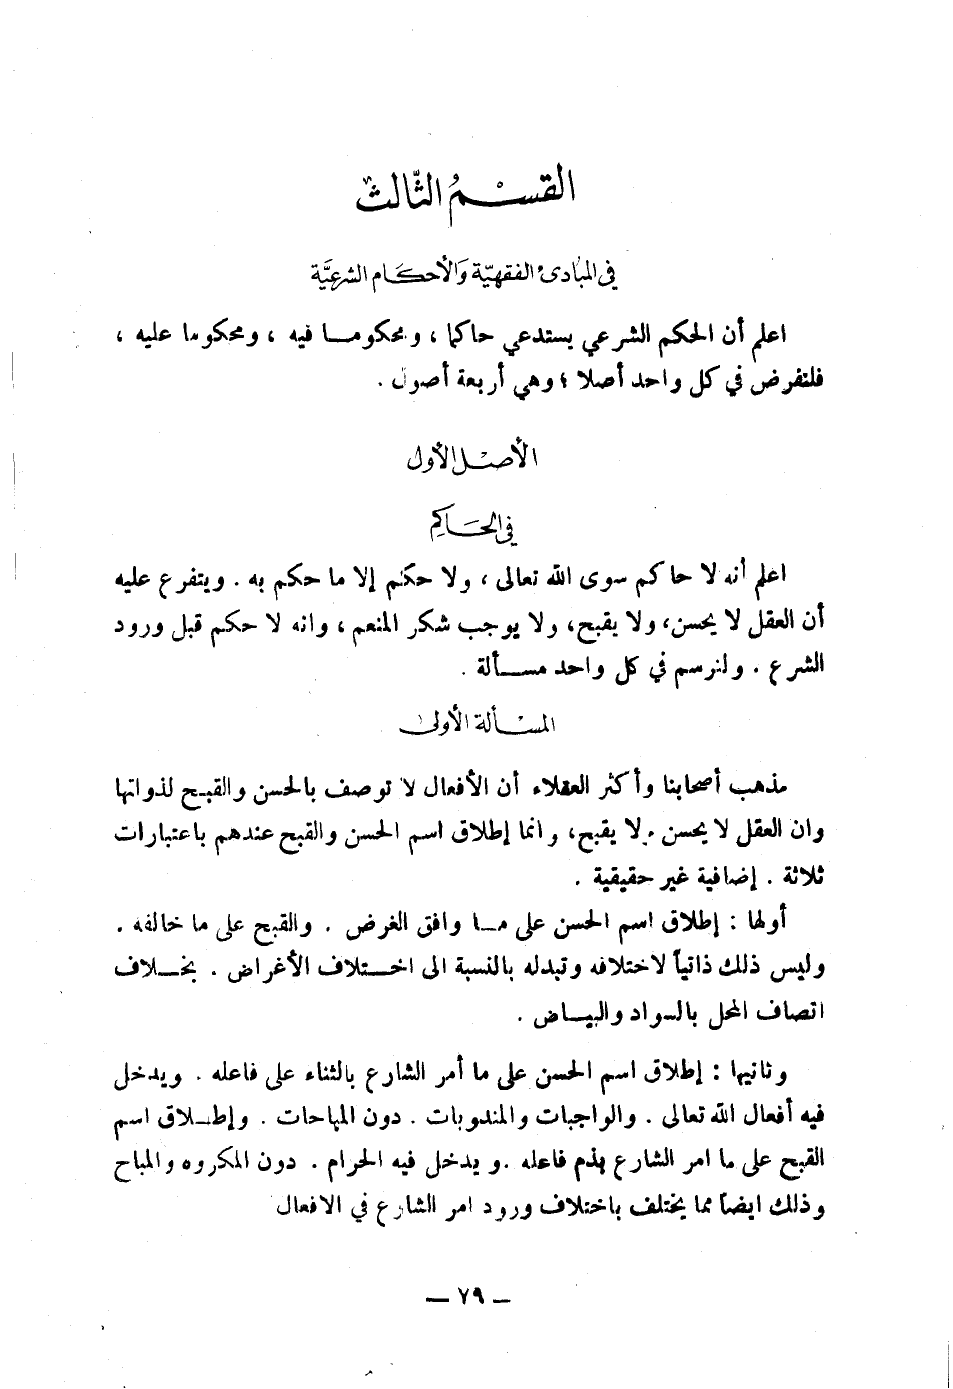 القسم الثّالث
في المبادئ الفقهيّة والأحكام الشرعيّة
اعلم أن الحكم الشرعي يستدعي حاكما ، ومحكوما فيه ، ومحكوما عليه ،
فلنفرض في كل واحد أصلا ؛ وهي أربعة أصول .
الأصل الأول
في الحاكم
اعلم أنه لا حاكم سوى الله تعالى ، ولا حكم إلا ما حكم به . ويتفرع عليه
أن العقل لا يحسن ، ولا يقبح ، ولا يوجب شكر المنعم ، وانه لا حكم قبل ورود
الشرع . ولنرسم في كل واحد مسألة .
المسألة الأولى
مذهب أصحابنا وأكثر العقلاء أن الأفعال لا توصف بالحسن والقبح لذواتها
وان العقل لا يحسن ولا يقبح ، وانما إطلاق اسم الحسن والقبح عندهم باعتبارات
ثلاثة . إضافية غير حقيقية .
أولها : إطلاق اسم الحسن على ما وافق الغرض . والقبح على ما خالفه .
وليس ذلك ذاتياً لاختلافه وتبدله بالنسبة الى اختلاف الأغراض . بخلاف
اتصاف المحل بالسواد والبياض .
وثانيها : إطلاق اسم الحسن على ما أمر الشارع بالثناء على فاعله . ويدخل
فيه أفعال الله تعالى . والواجبات والمندوبات . دون المباحات . وإطلاق اسم
القبح على ما امر الشارع بذم فاعله . ويدخل فيه الحرام . دون المكروه والمباح
وذلك ايضاً مما يختلف باختلاف ورود امر الشارع في الافعال
— ٧٩ —